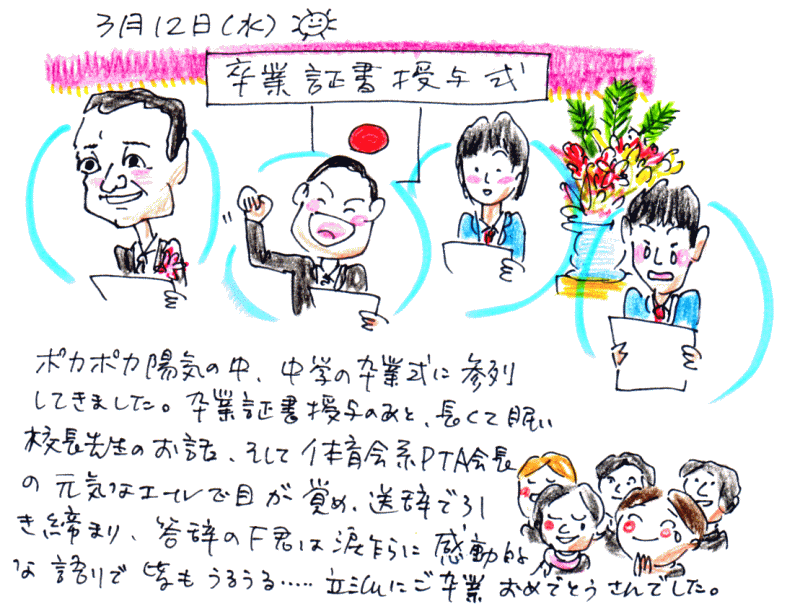 3月12日(水)
卒業証書授与式
ポカポカ陽気の中、中学の卒業式に参列
してきました。卒業証書授与のあと、長くて眠い
校長先生のお話、そして体育会系PTA会長
の元気なエールで目が覚め、送辞で引
き締まり、答辞のF君は涙ながらに感動的
な語りで皆もうるうる..... 立派にご卒業 おめでとうさんでした。